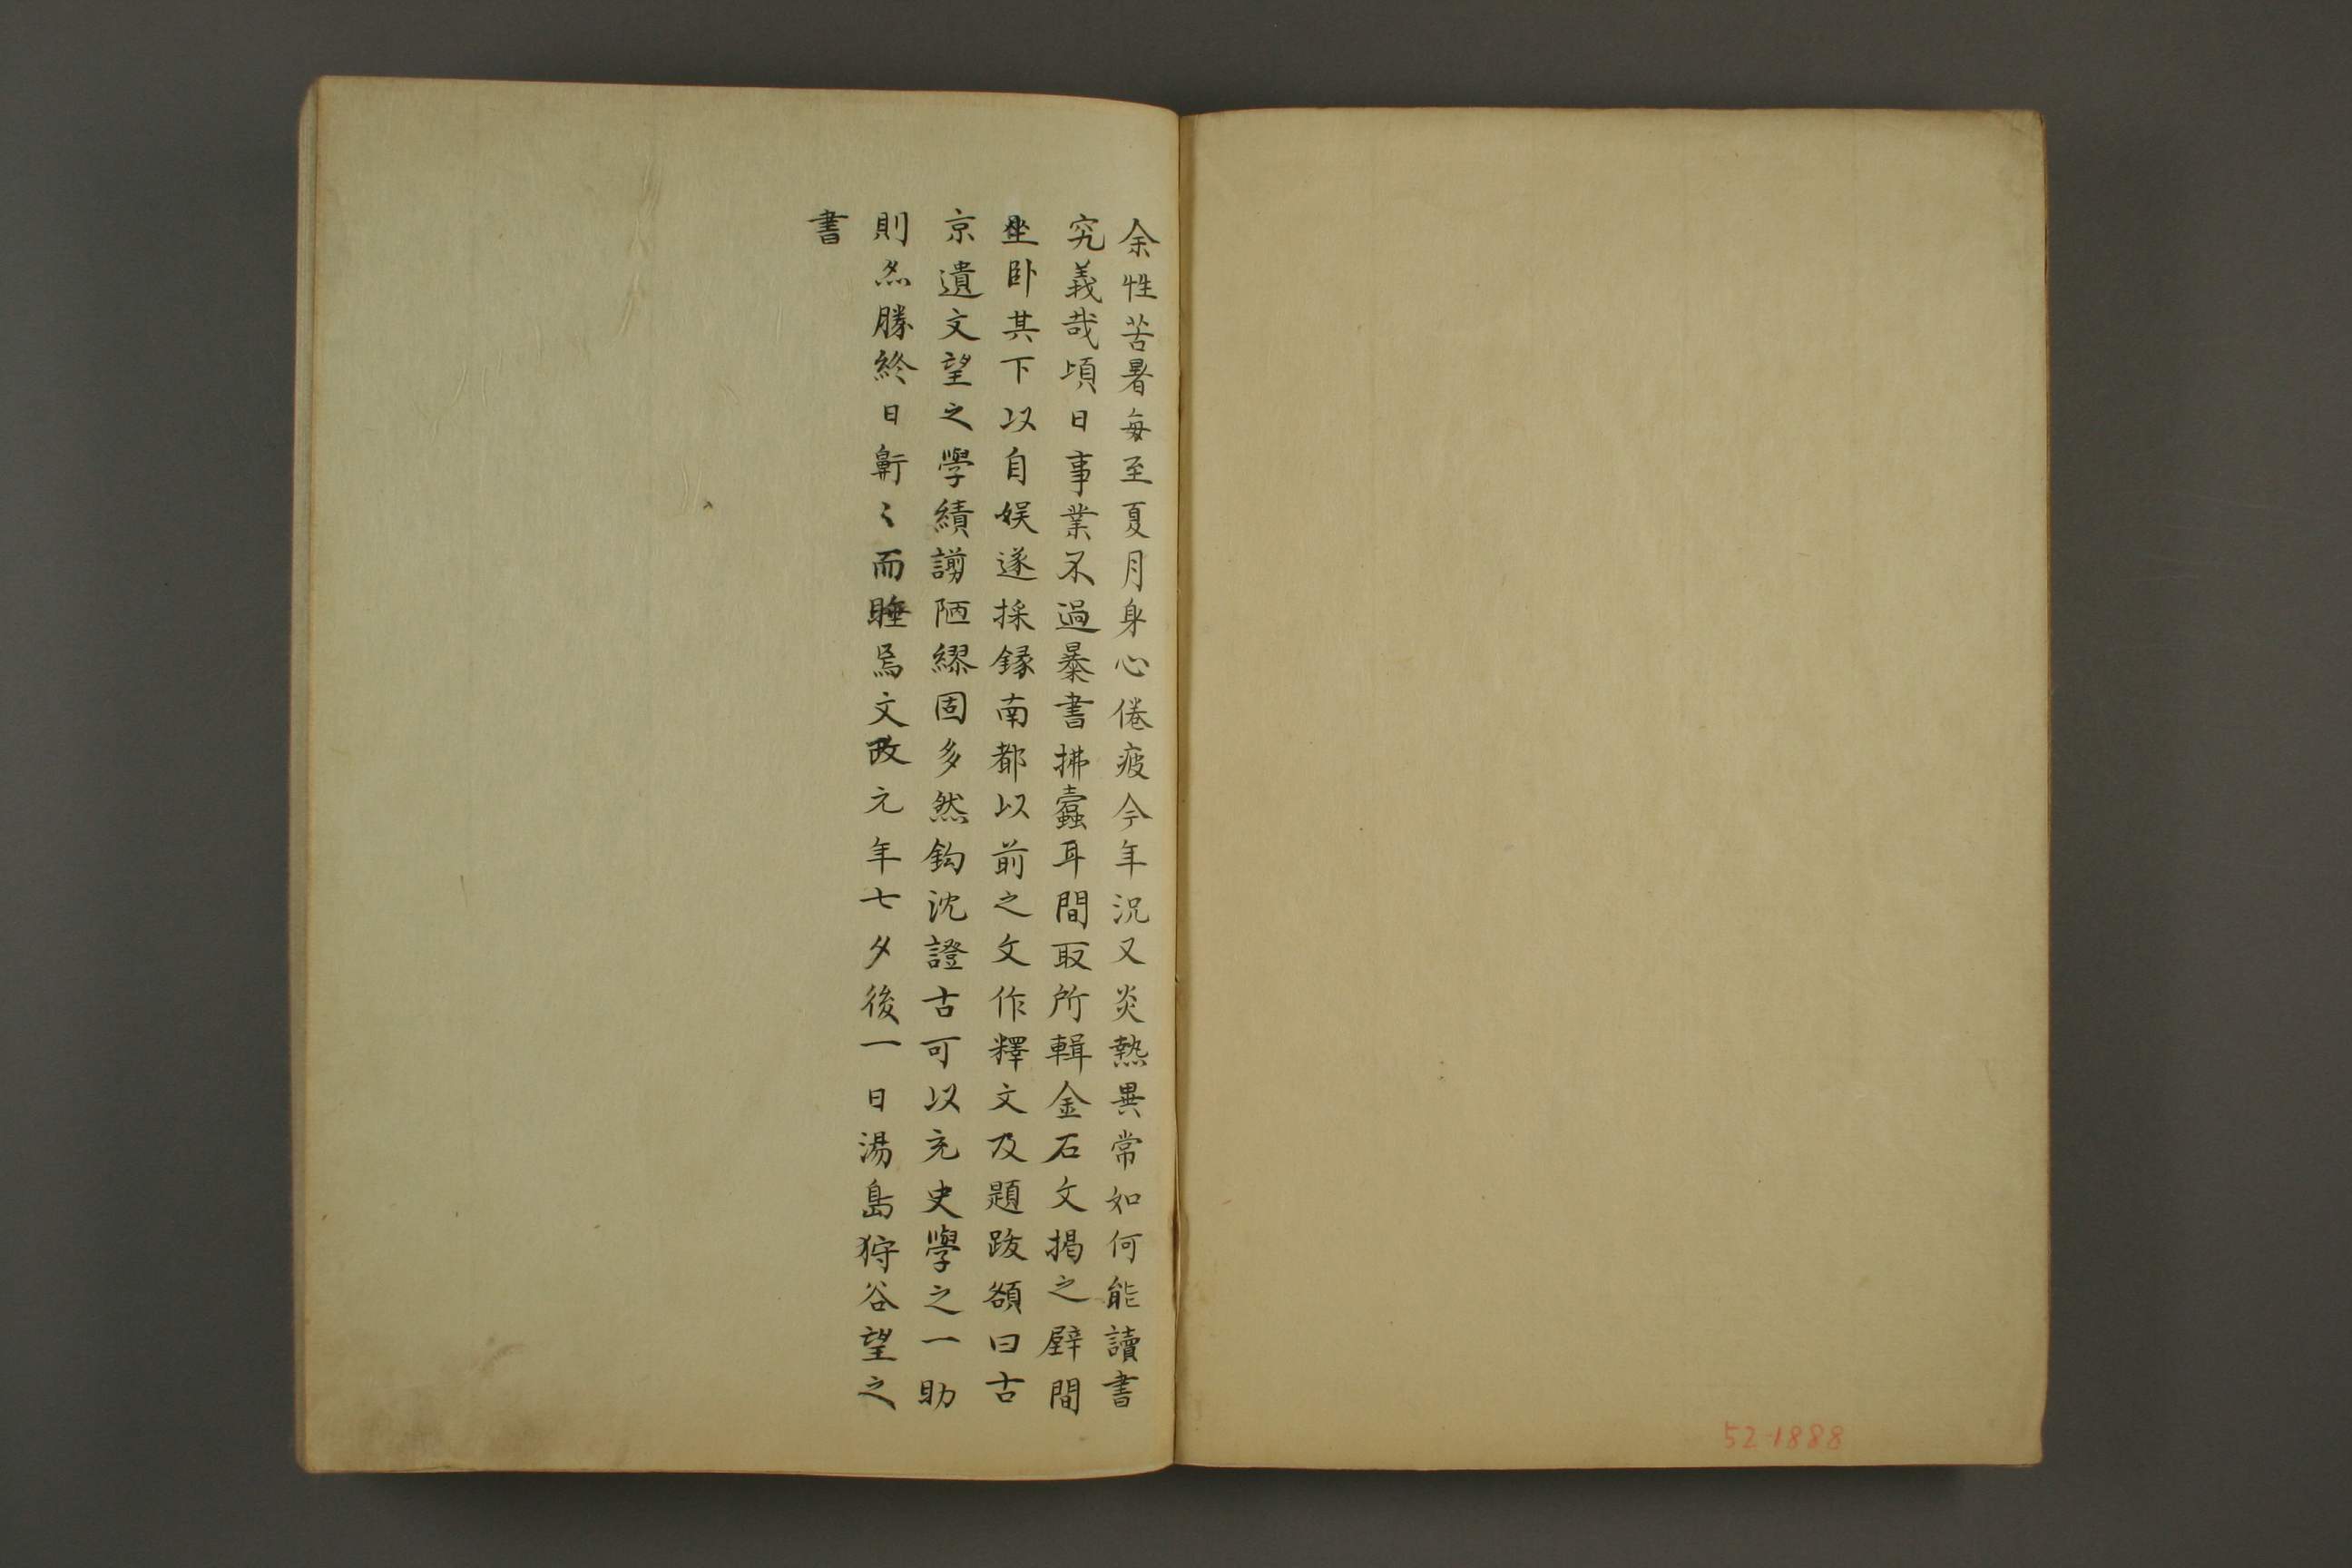 余性苦暑每至夏月身心倦疲今年況又炎熱異常如何能讀書
究義哉頃日事業不過暴書拂蠹耳間取所輯金石文掲之壁間
坐卧其下以自娯遂採録南都以前之文作釋文及題跋頟曰古
京遺文望之學績謭陋繆固多然鈎沈證古可以充史學之一助
則勝終日鼾〻而睡焉文政元年七夕後一日湯島狩谷望之
書
52-1888